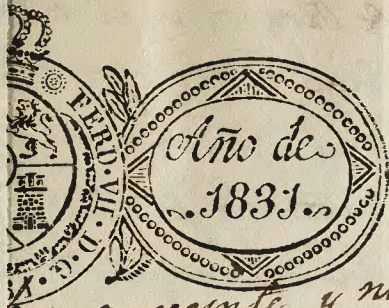 FERD·VII·D·G·
Año de
1831.
y